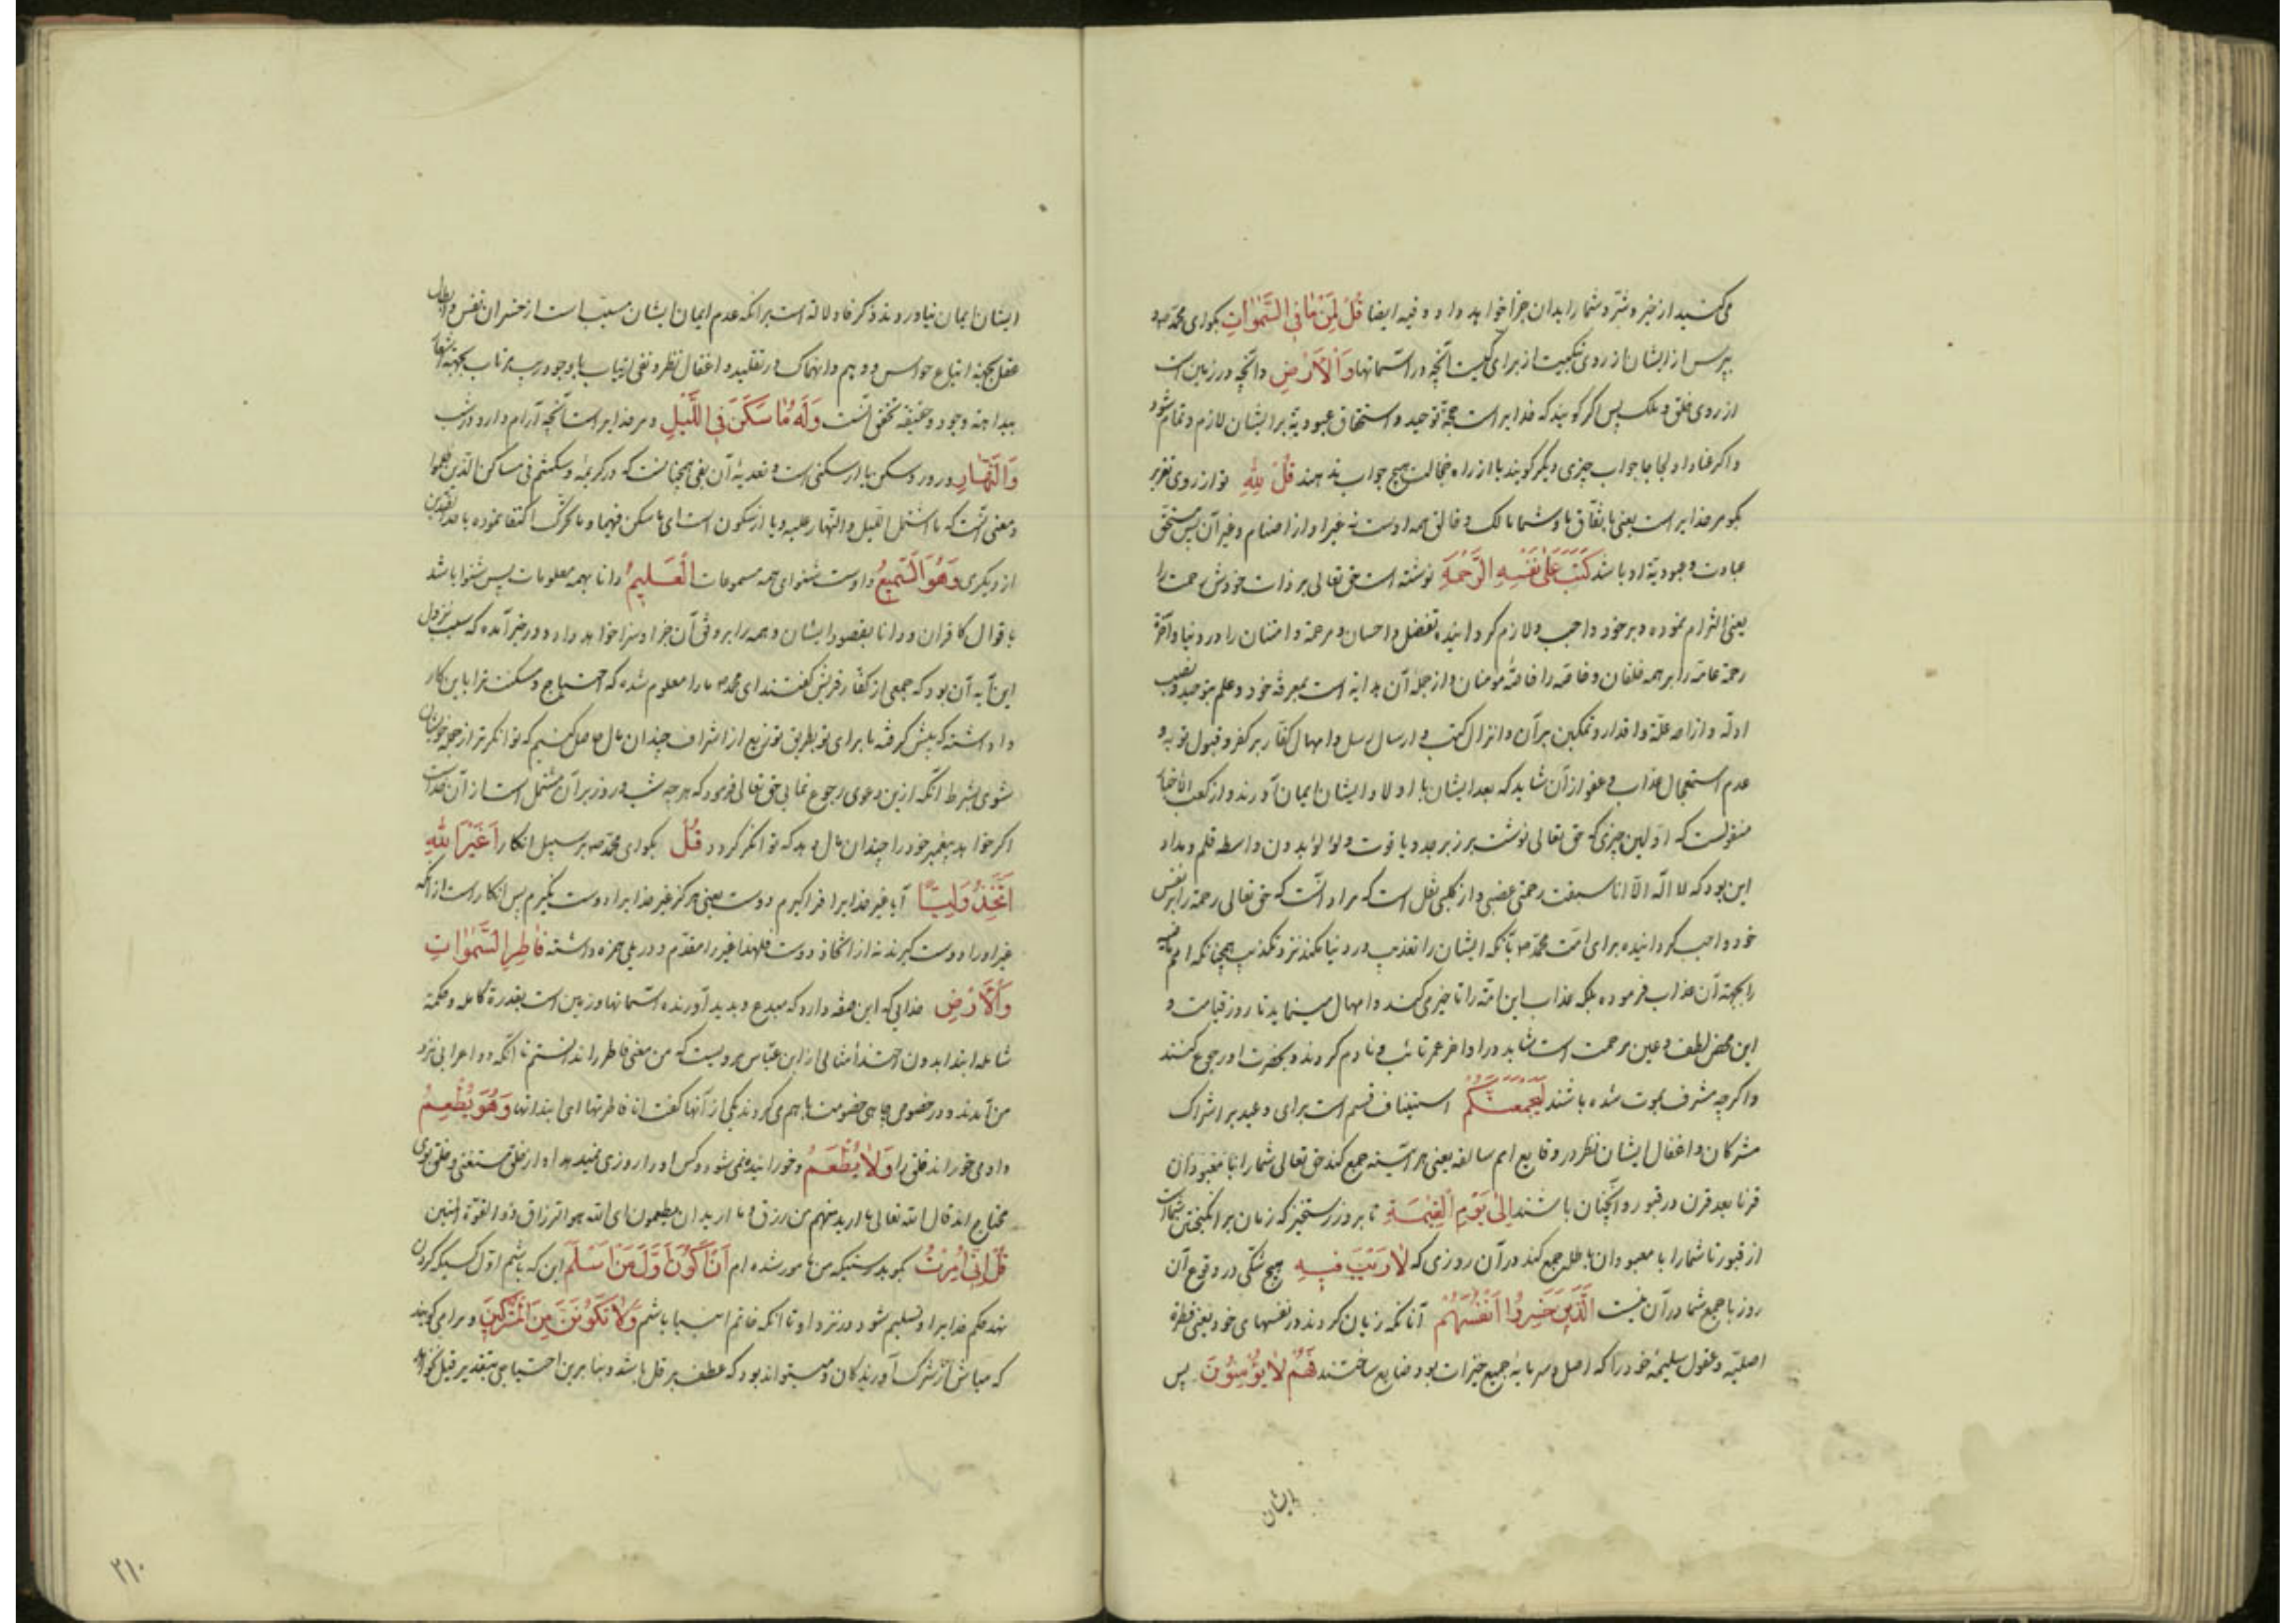 می‌کنید از خیر و شر و شما را بدان جزا خواهد داد و فیه ایضا قُلْ لِمَنْ مَا فِی السَّمٰوَاتِ بگو ای محمد ص و
بپرس از ایشان از روی تبکیت از برای کیست آنچه در آسمانها وَالْاَرْضِ و آنچه در زمین است
از روی خلق و ملک پس اگر گویند که خدایراست حجة توحید و استحقاق عبودیة برایشان لازم و تمام شود
و اگر عنادا و لجاجا جواب چیزی دیگر گویند یا از راه خجالت هیچ جواب ندهند قُلْ لِلّٰهِ تو از روی تقریر
بگو مر خدایراست یعنی باتفاق ما و شما مالک و خالق همه اوست نه غیر او از اصنام و غیر آن پس مستحق
عبادت و عبودیة او باشد کَتَبَ عَلٰی نَفْسِهِ الرَّحْمَةَ نوشته است حق تعالی بر ذات خودش رحمت را
یعنی التزام نموده و بر خود واجب و لازم گردانیده تفضل و احسان و مرحمة و امتنان را در دنیا و آخرة
رحمة عامه را بر همه خلقان و خاصه را خاصهٔ مؤمنان و از جملهٔ آن هدایة است بمعرفة خود و علم بتوحید و نصب
ادله و ازاحه علة و اقدار و تمکین بر آن و انزال کتب و ارسال رسل و امهال کفار بر کفر و قبول توبه و
عدم استعجال عذاب و عفو از آن شاید که بعد ایشان یا اولاد ایشان ایمان آورند و از کعب الاخبار
منقولست که اولین چیزی که حق تعالی نوشت بر زبرجد و یاقوت و لؤلؤ بدون واسطه قلم و مداد
این بود که لا اله الا انا سبقت رحمتی غضبی و از کلبی نقل است که مراد آنست که حق تعالی رحمة را بر نفس
خود واجب گردانیده برای امت محمد ص بآنکه ایشان را تعذیب در دنیا نکند نزد تکذیب همچنانکه امم ماضیه
را بجهة آن عذاب فرموده بلکه عذاب این امة را تاخیر می‌کند و امهال مینماید تا روز قیامت و
این محض لطف و عین مرحمت است شاید در اواخر عمر تائب و نادم گردند و بحضرت او رجوع کنند
و اگرچه مشرف بموت شده باشند لَیَجْمَعَنَّکُمْ استیناف قسم است برای وعید بر اشراک
مشرکان و اغفال ایشان نظر در وقایع امم سالفه یعنی هر آینه جمع کند حق تعالی شما را با معبودان
قرنا بعد قرن در قبور و آنچنان باشند اِلٰی یَوْمِ الْقِیٰمَةِ تا بروز رستخیز که زمان برانگیختن شماست
از قبور تا شما را با معبودان باطله جمع کند در آن روزی که لَا رَیْبَ فِیهِ هیچ شکی در وقوع آن
روز یا جمع شما در آن نیست اَلَّذِینَ خَسِرُوا اَنْفُسَهُمْ آنانکه زیان کردند در نفسهای خود یعنی فطرة
اصلیه و عقول سلیمهٔ خود را که اصل و سرمایه جمیع خیرات بود ضایع ساختند فَهُمْ لَا یُؤْمِنُونَ پس
ایشان
ایشان ایمان نیاورند و ذکر فا دلالة است بر آنکه عدم ایمان ایشان مسبب است از خسران نفس و ابطال
عقل بجهة اتباع حواس و وهم و انهماک در تقلید و اغفال نظر و نفی ارتیاب با وجود ریب مرتاب بجهة
بداهة وجود و حقیقة تحقق آنست وَلَهُ مَا سَکَنَ فِی اللَّیْلِ و مر خدایراست آنچه آرام دارد در شب
وَالنَّهَارِ و در روز و سکن یا از سکنی است و تعدیهٔ آن بفی همچنانست که در کریمهٔ و سکنتم فی مساکن الذین ظلموا
و معنی آنست که ما اشتمل اللیل و النهار علیه و یا از سکون است ای ما سکن فیهما و ما تحرک اکتفا نموده باحد الضدین
از دیگری وَهُوَ السَّمِیعُ و اوست شنوای همه مسموعات الْعَلِیمُ دانا بهمه معلومات پس شنوا باشد
باقوال کافران و دانا بقصور ایشان و همه را بر وفق آن جزا و سزا خواهد داد و در خبر آمده که سبب نزول
این آیه آن بود که جمعی از کفار قریش گفتند ای محمد ما را معلوم شده که احتیاج و مسکنت ترا باین کار
داشته که پیش گرفته ما برای تو بطریق توزیع از اشراف چندان مال حاصل کنیم که توانگرتر از همه خویشان
شوی بشرط آنکه ازین دعوی رجوع نمایی حق تعالی فرمود که هر چه شب و روز بر آن مشتمل است از آن خداست
اگر خواهد پیغمبر خود را چندان مال دهد که توانگر گردد قُلْ بگو ای محمد ص بر سبیل انکار اَغَیْرَ اللهِ
اَتَّخِذُ وَلِیًّا آیا غیر خدایرا فراگیرم دوست یعنی هرگز غیر خدایرا دوست نگیرم پس انکار است از آنکه
غیر او را دوست گیرند نه از اتخاذ دوست فلهذا غیر را مقدم و در پی همزه داشته فَاطِرِ السَّمٰوَاتِ
وَالْاَرْضِ خدایی که این صفة دارد که مبدع و پدید آورنده آسمانها و زمین است بقدرة کامله و حکمة
شامله ابتدا بدون احتذاء مثالی از ابن عباس مرویست که من معنی فاطر را ندانستم تا آنکه دو اعرابی نزد
من آمدند و در خصوص چاهی خصومت باهم می‌کردند یکی از آنها گفت انا فطرتها ای ابتدأتها وَهُوَ یُطْعِمُ
و او می‌خوراند خلق را وَلَا یُطْعَمُ و خورانیده نمی‌شود و کس او را روزی نمیدهد او از خلق مستغنی و خلق بوی
محتاج اند قال الله تعالی ما ارید منهم من رزق و ما ارید ان یطعمون ان الله هو الرزاق ذو القوة المتین
قُلْ اِنِّی اُمِرْتُ بگو بدرستیکه من مامور شده‌ام اَنْ اَکُونَ اَوَّلَ مَنْ اَسْلَمَ این که باشم اول کسیکه گردن
نهد حکم خدایرا و تسلیم شود در نزد او تا آنکه خاتم انبیا باشم وَلَا تَکُونَنَّ مِنَ الْمُشْرِکِینَ و مرا می‌گویند
که مباش از شرک آورندگان و میتواند بود که عطف بر قل باشد و بنابرین احتیاجی بتقدیر قیل
۲۱۰